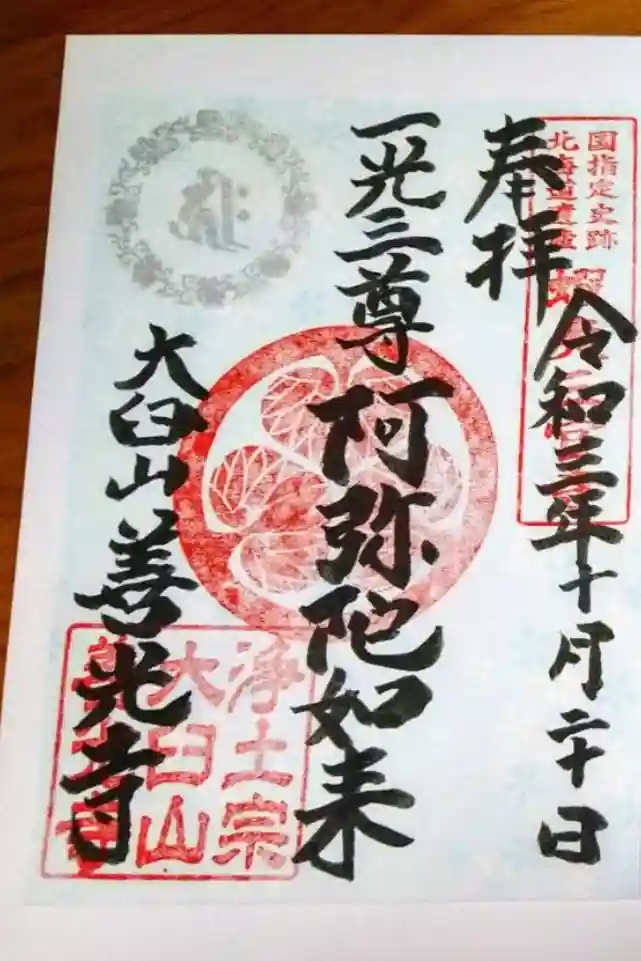 奉拝
令和三年十月二十日
国指定史跡
北海道遺産
一光三尊
阿弥陀如来
大臼山
善光寺
浄土宗
大臼山
善光寺